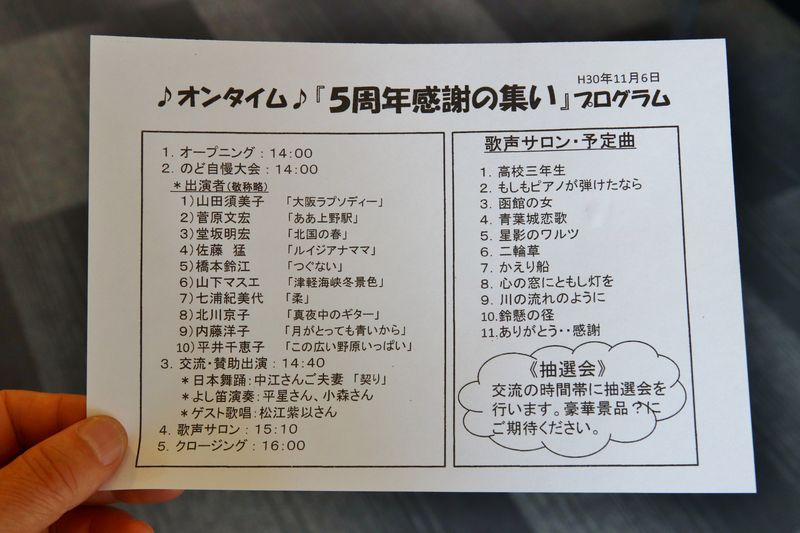 H30年11月6日
♪オンタイム♪『5周年感謝の集い』プログラム
1. オープニング：14:00
2. のど自慢大会：14:00
＊出演者(敬称略)
1)山田須美子 「大阪ラプソディー」
2)菅原文宏 「ああ上野駅」
3)堂坂明宏 「北国の春」
4)佐藤 猛 「ルイジアナママ」
5)橋本鈴江 「つぐない」
6)山下マスエ 「津軽海峡冬景色」
7)七浦紀美代 「柔」
8)北川京子 「真夜中のギター」
9)内藤洋子 「月がとっても青いから」
10)平井千恵子 「この広い野原いっぱい」
3. 交流・賛助出演：14:40
＊日本舞踊：中江さんご夫妻 「契り」
＊よし笛演奏：平星さん、小森さん
＊ゲスト歌唱：松江紫以さん
4. 歌声サロン：15:10
5. クロージング：16:00
歌声サロン・予定曲
1. 高校三年生
2. もしもピアノが弾けたなら
3. 函館の女
4. 青葉城恋歌
5. 星影のワルツ
6. 二輪草
7. かえり船
8. 心の窓にともし灯を
9. 川の流れのように
10. 鈴懸の径
11. ありがとう・・感謝
《抽選会》
交流の時間帯に抽選会を
行います。豪華景品？に
ご期待ください。